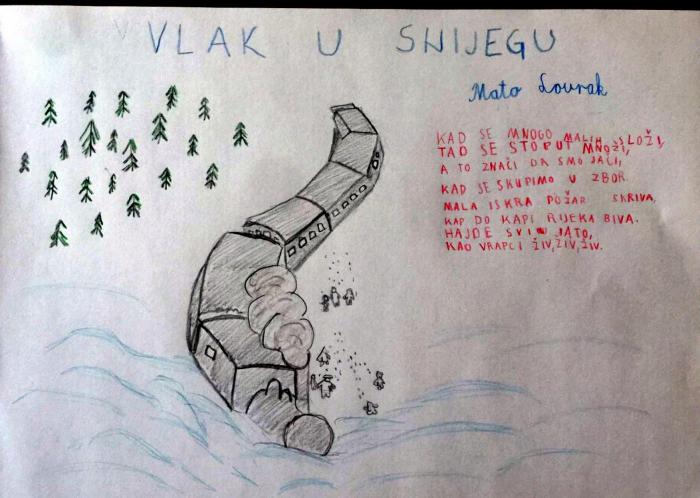 VLAK U SNIJEGU
Mato Lovrak
KAD SE MNOGO MALIH SLOŽI,
TAD SE STOPUT MNOŽI,
A TO ZNAČI DA SMO JAČI,
KAD SE SKUPIMO U ZBOR.
MALA ISKRA POŽAR SKRIVA,
KAP DO KAPI RIJEKA BIVA.
HAJDE SVI U JATO,
KAO VRAPCI ŽIV, ŽIV, ŽIV.